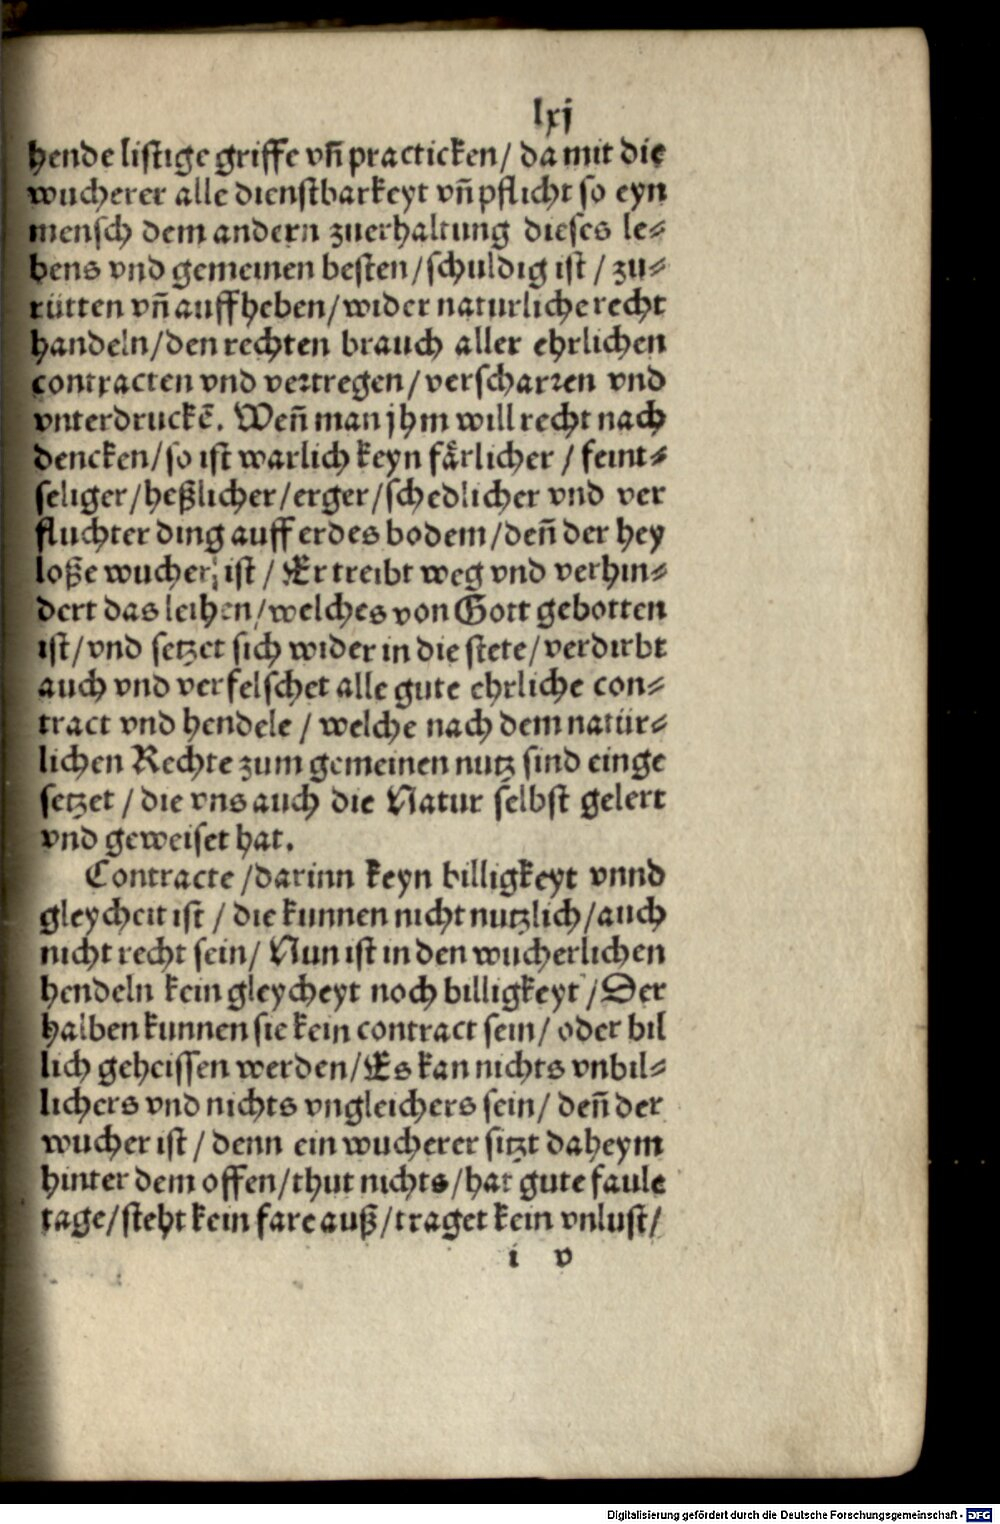 lxj
hende listige griffe vñ practicken/ da mit die
wucherer alle dienstbarkeyt vñ pflicht so eyn
mensch dem andern zuerhaltung dieses le⸗
bens vnd gemeinen besten/schuldig ist / zu⸗
rütten vñ auffheben/wider naturliche recht
handeln/den rechten brauch aller ehrlichen
contracten vnd vertregen/verscharren vnd
vnterdruckē. Weñ man jhm will recht nach
dencken/so ist warlich keyn fårlicher / feint⸗
seliger/heßlicher/erger/schedlicher vnd ver
fluchter ding auff erdes bodem/deñ der hey
loße wucher, ist / Er treibt weg vnd verhin⸗
dert das leihen/welches von Gott gebotten
ist/vnd setzet sich wider in die stete/verdirbt
auch vnd verfelschet alle gute ehrliche con⸗
tract vnd hendele / welche nach dem natür⸗
lichen Rechte zum gemeinen nutz sind einge
setzet / die vns auch die Natur selbst gelert
vnd geweiset hat.
Contracte /darinn keyn billigkeyt vnnd
gleycheit ist / die kunnen nicht nutzlich/auch
nicht recht sein/ Nun ist in den wucherlichen
hendeln kein gleycheyt noch billigkeyt /Der
halben kunnen sie kein contract sein/ oder bil
lich geheissen werden/Es kan nichts vnbil⸗
lichers vnd nichts vngleichers sein/ deñ der
wucher ist / denn ein wucherer sitzt daheym
hinter dem offen/thut nichts/hat gute faule
tage/steht kein fare auß/traget kein vnlust/
i v
Digitalisierung gefördert durch die Deutsche Forschungsgemeinschaft - DFG